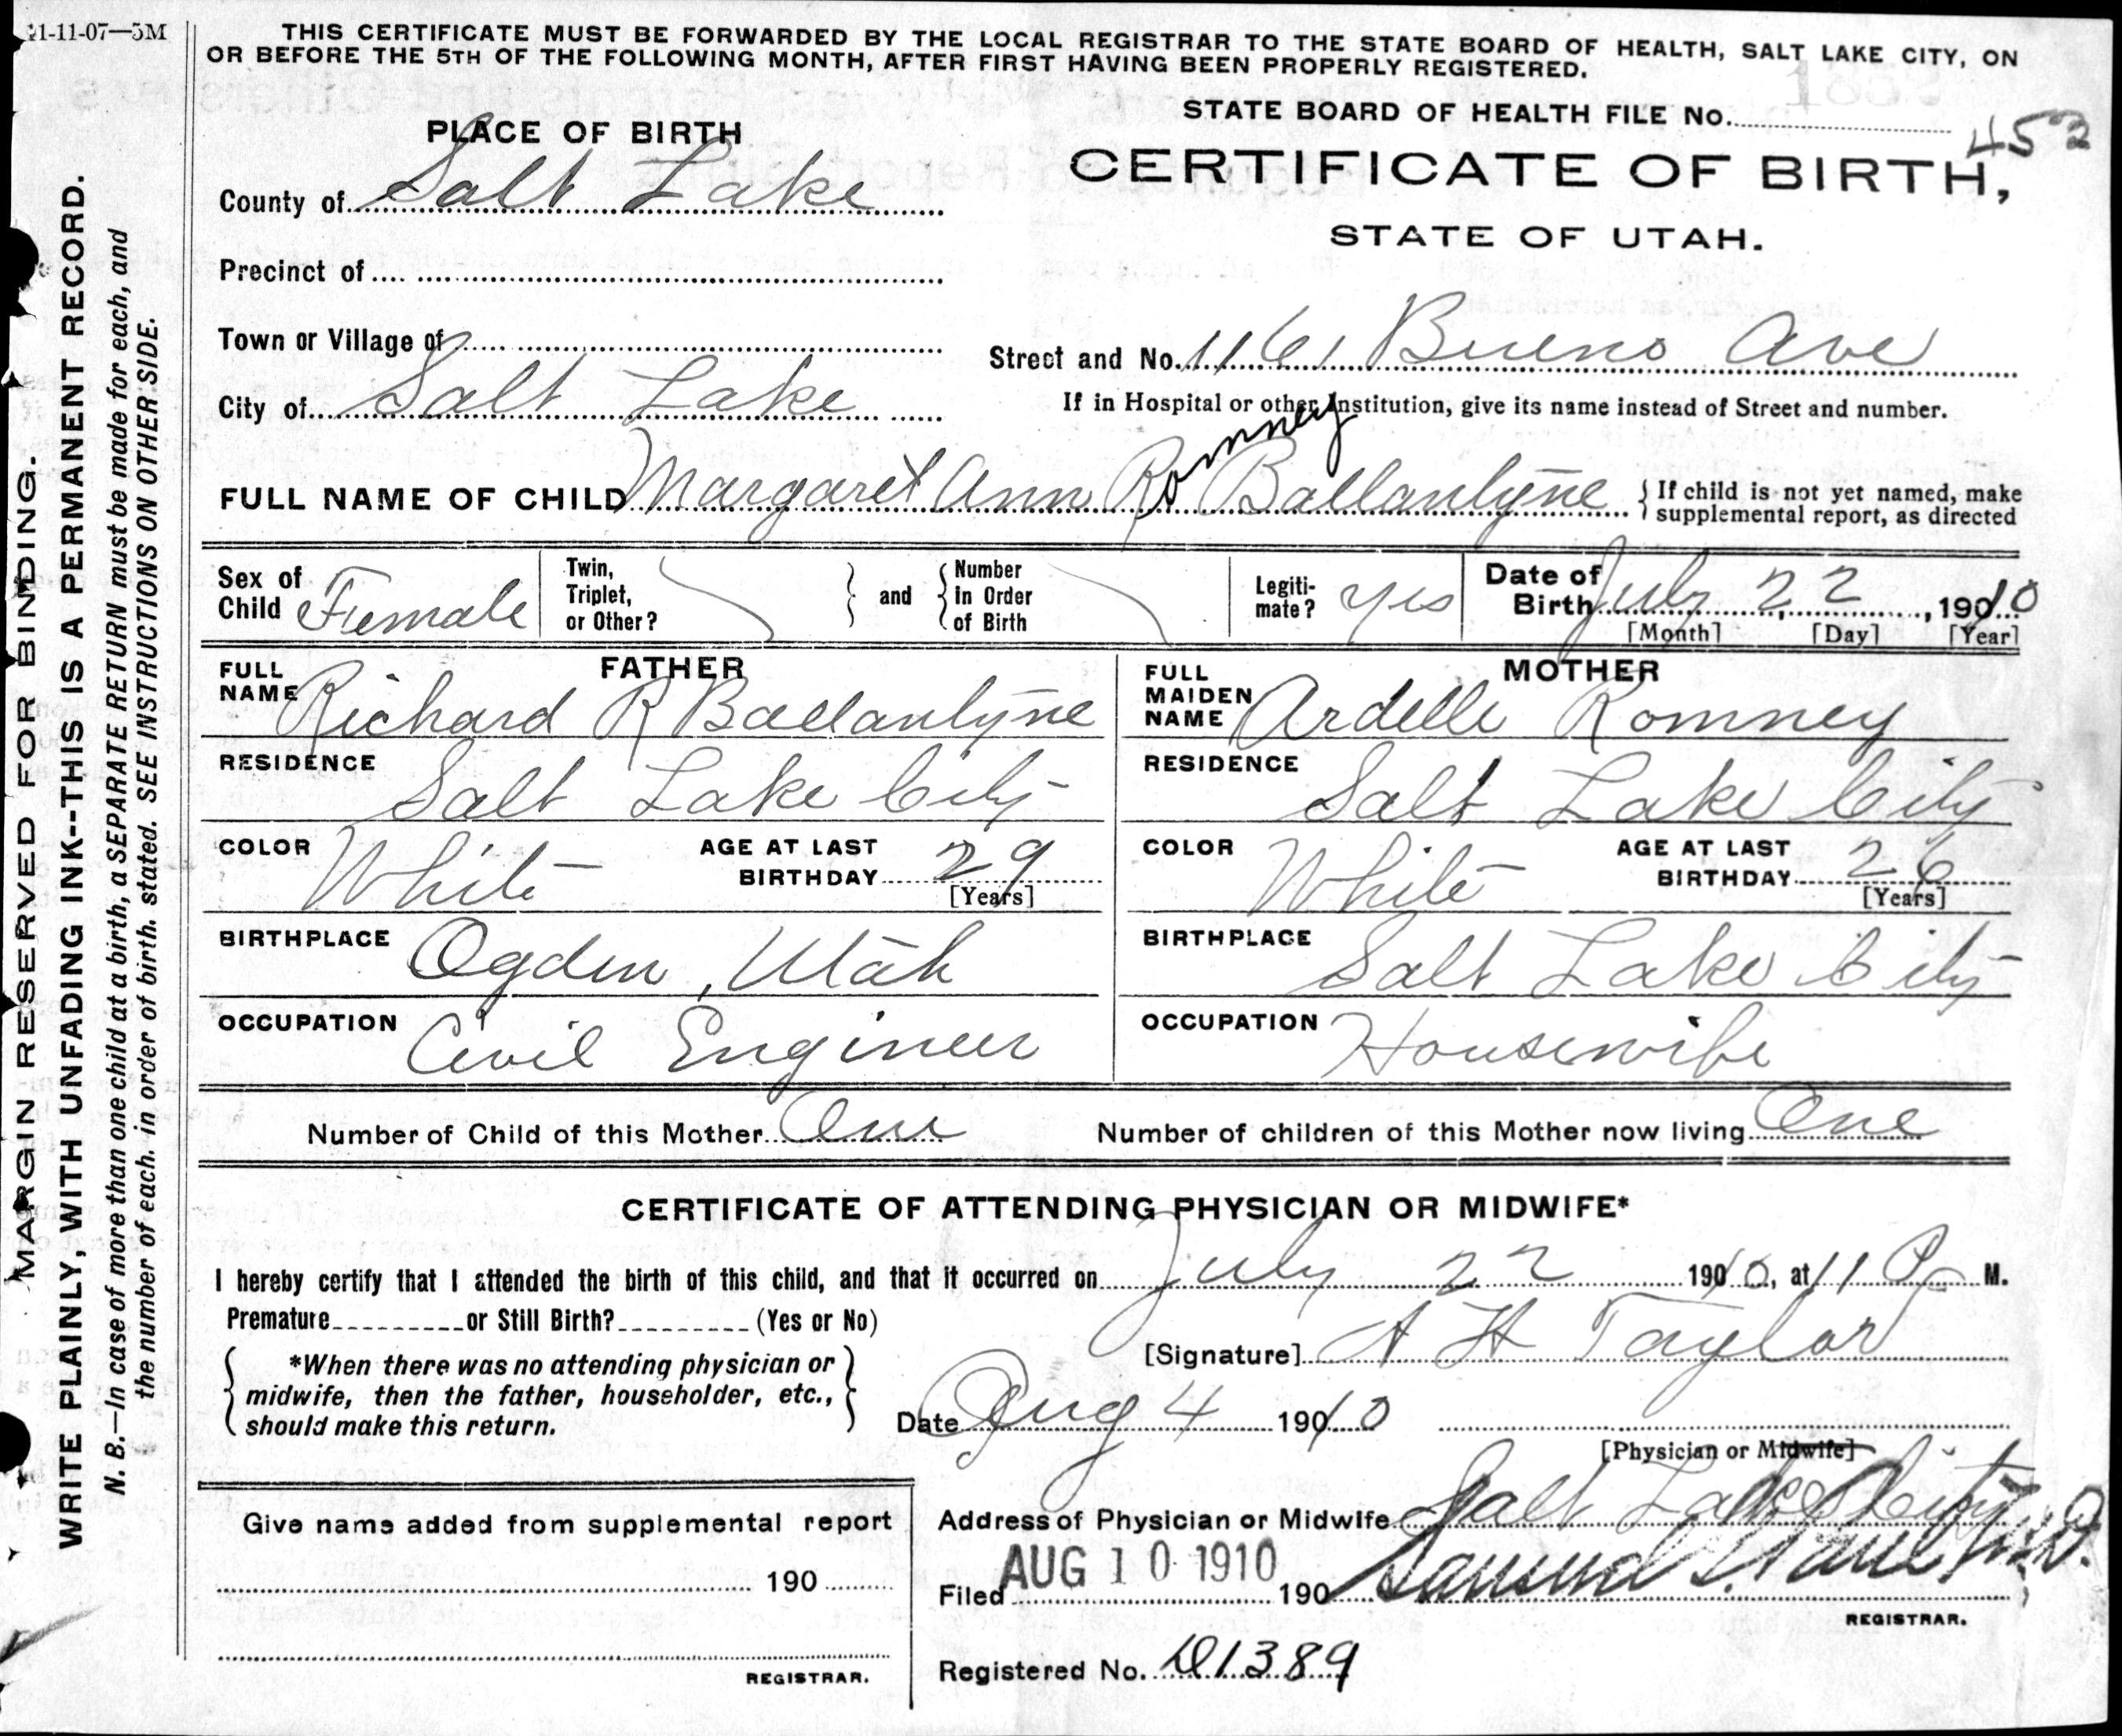 21-11-07—5M
THIS CERTIFICATE MUST BE FORWARDED BY THE LOCAL REGISTRAR TO THE STATE BOARD OF HEALTH, SALT LAKE CITY, ON
OR BEFORE THE 5TH OF THE FOLLOWING MONTH, AFTER FIRST HAVING BEEN PROPERLY REGISTERED.
STATE BOARD OF HEALTH FILE No. 453
PLACE OF BIRTH
CERTIFICATE OF BIRTH,
STATE OF UTAH.
County of Salt Lake
Precinct of
Town or Village of
Street and No. 1161 Bueno Ave
City of Salt Lake
If in Hospital or other Institution, give its name instead of Street and number.
FULL NAME OF CHILD Margaret Ann Romney Ballantyne
If child is not yet named, make
supplemental report, as directed
Sex of Child Female
Twin, Triplet, or Other?
and
Number in Order of Birth
Legiti-mate? Yes
Date of Birth July 22, 1910
[Month] [Day] [Year]
FATHER
FULL NAME Richard R Ballantyne
RESIDENCE Salt Lake City
COLOR White AGE AT LAST BIRTHDAY 29
[Years]
BIRTHPLACE Ogden, Utah
OCCUPATION Civil Engineer
MOTHER
FULL MAIDEN NAME Ardelle Romney
RESIDENCE Salt Lake City
COLOR White AGE AT LAST BIRTHDAY 26
[Years]
BIRTHPLACE Salt Lake City
OCCUPATION Housewife
Number of Child of this Mother One
Number of children of this Mother now living One
CERTIFICATE OF ATTENDING PHYSICIAN OR MIDWIFE*
I hereby certify that I attended the birth of this child, and that it occurred on July 22 1910, at 11 P M.
Premature or Still Birth? (Yes or No)
[Signature] A H Taylor
*When there was no attending physician or
midwife, then the father, householder, etc.,
should make this return.
Date Aug 4 1910
[Physician or Midwife]
Give name added from supplemental report
190
REGISTRAR.
Address of Physician or Midwife Salt Lake City
Filed AUG 10 1910 190 Samuel G. Paul M.D.
REGISTRAR.
Registered No. D1389
MARGIN RESERVED FOR BINDING.
WRITE PLAINLY, WITH UNFADING INK--THIS IS A PERMANENT RECORD.
N. B.—In case of more than one child at a birth, a SEPARATE RETURN must be made for each, and
the number of each. in order of birth. stated. SEE INSTRUCTIONS ON OTHER SIDE.